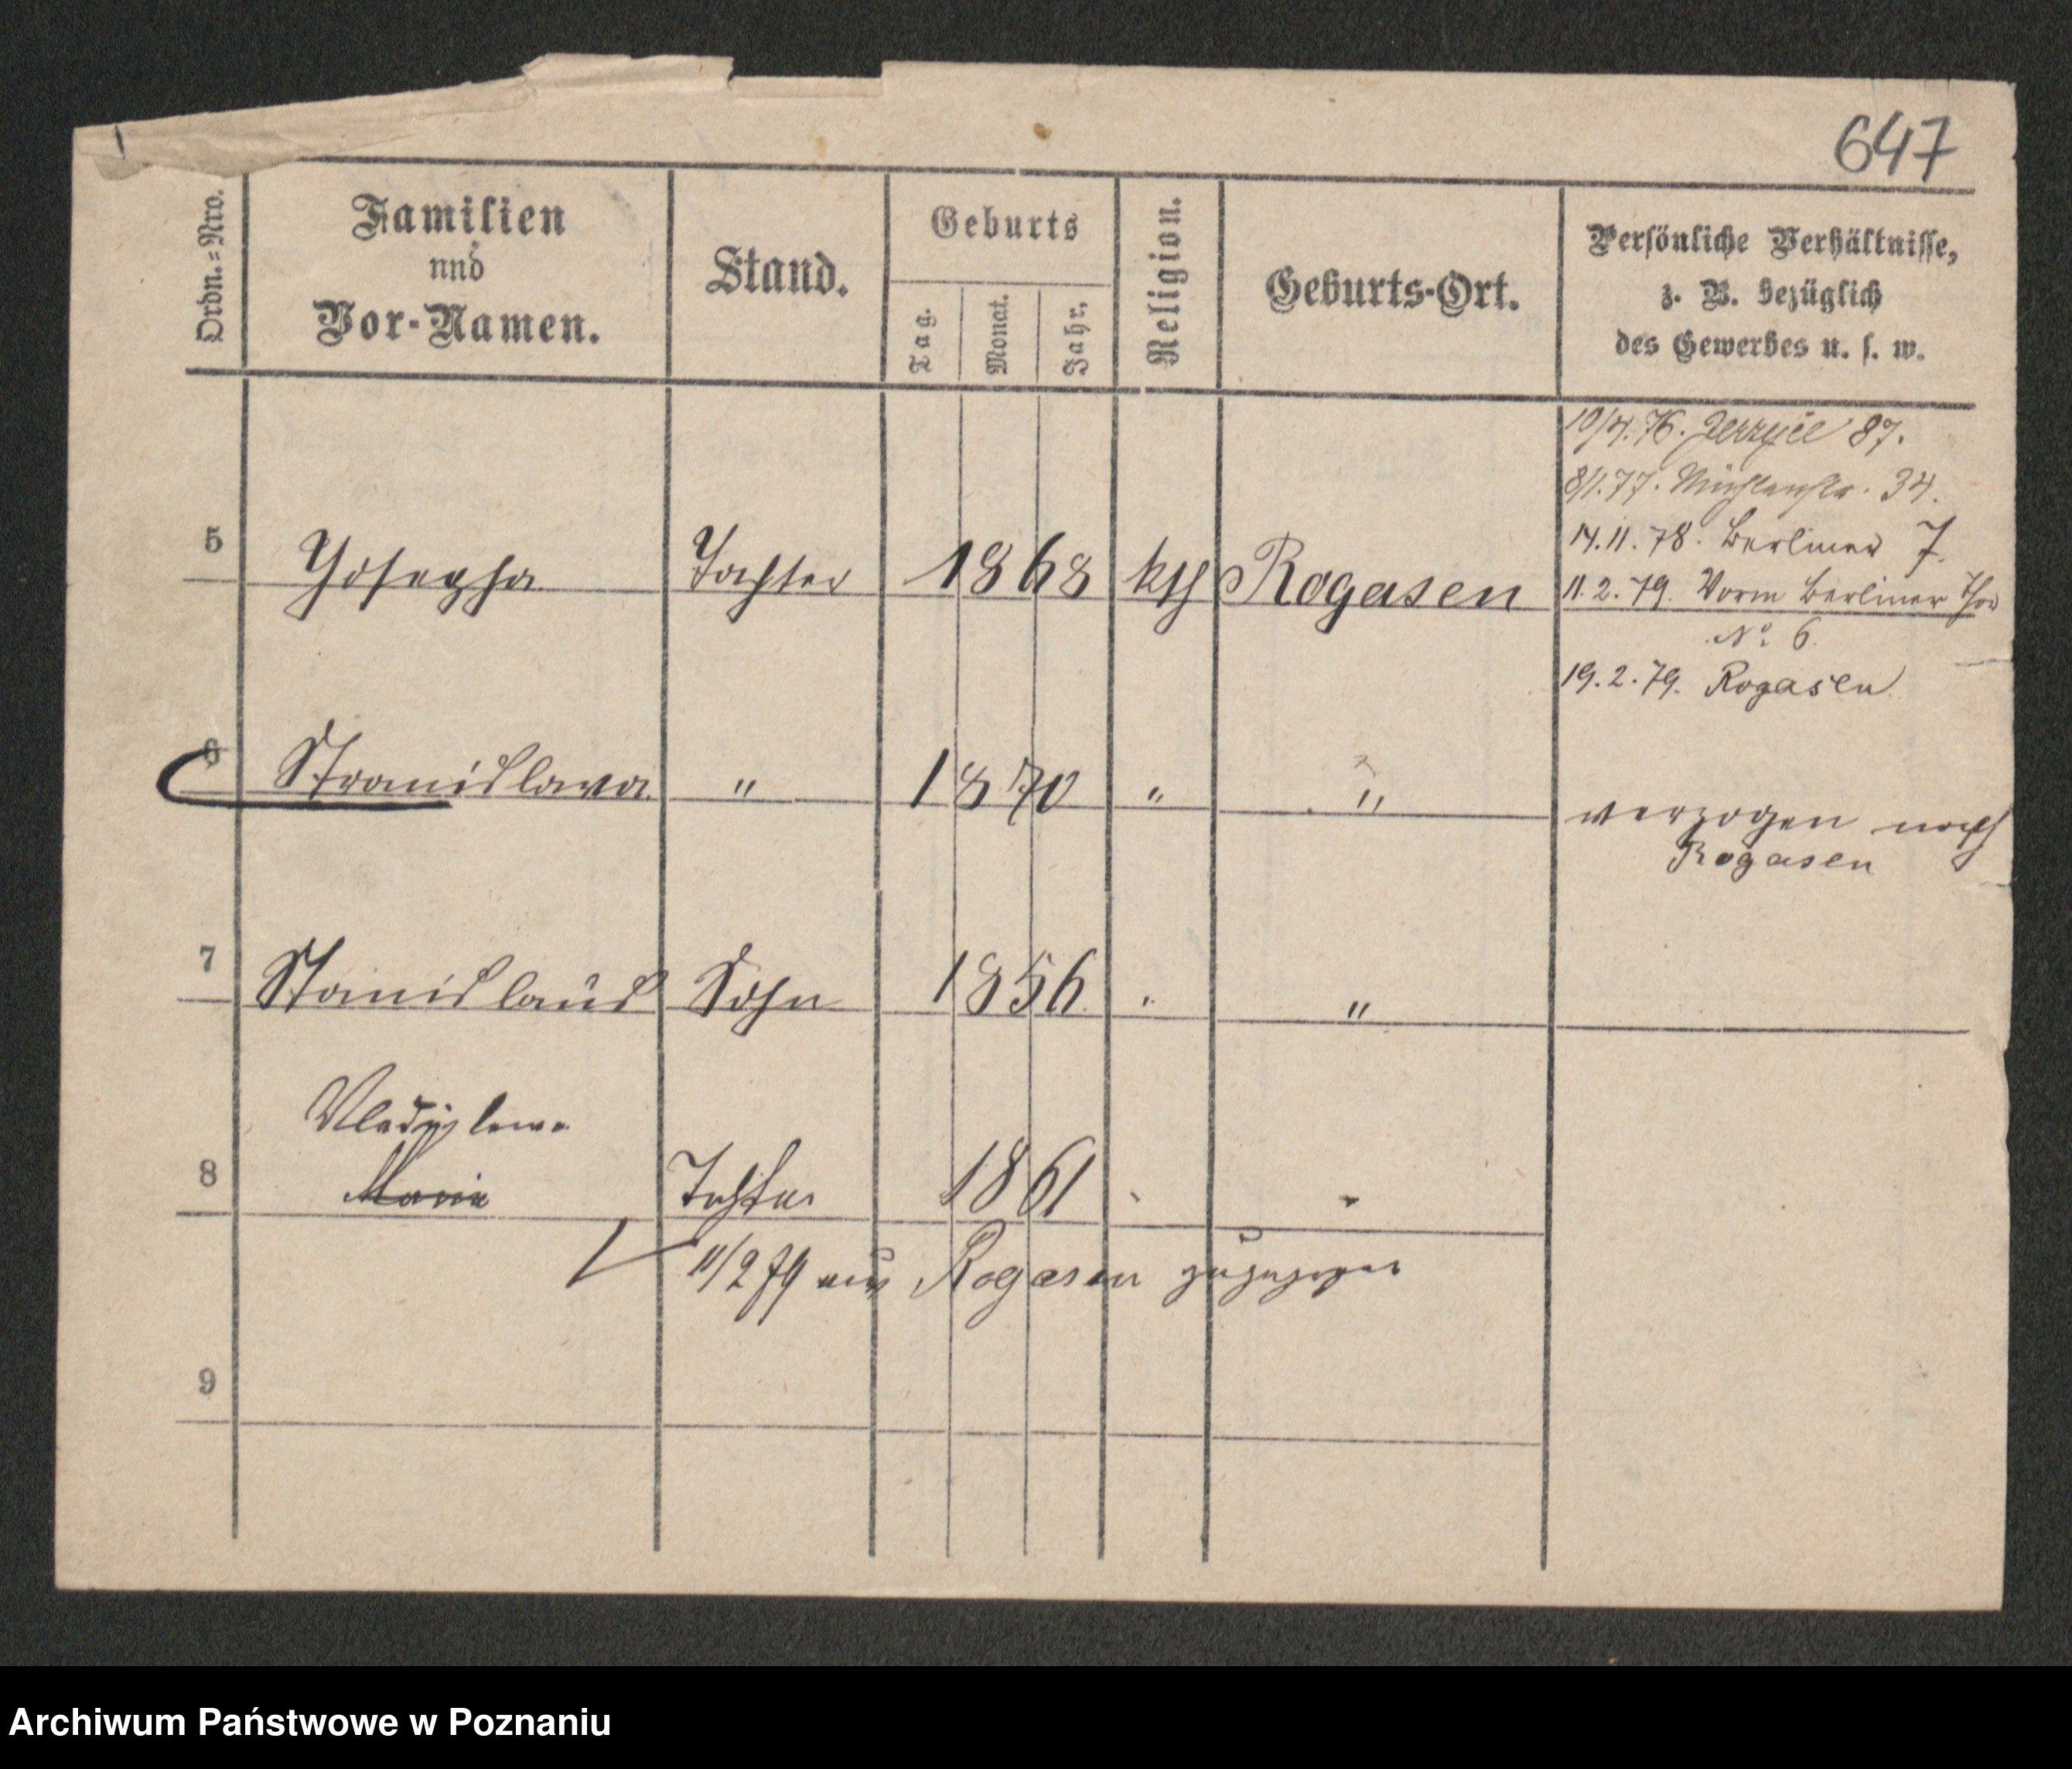 647
Ordn.=Nro.
Familien
und
Vor-Namen.
Stand.
Geburts
Tag.
Monat.
Jahr.
Religion.
Geburts-Ort.
Persönliche Verhältnisse,
z. B. bezüglich
des Gewerbes u. s. w.
10/4.76. Jerzyce 87.
8/1.77. Mühlenstr. 34.
14.11.78. Berliner 7.
11.2.79. Vorm Berliner Thor
No 6.
19.2.79. Rogasen
5 Josepha Tochter 1868 kth Rogasen
6 Stranislawa " 1870 " "
verzogen nach
Rogasen
7 Stanislaus Sohn 1856 " "
Vladislawa
8 Maria Tochter 1861 " "
11/2 79 aus Rogasen zugezogen
9
Archiwum Państwowe w Poznaniu